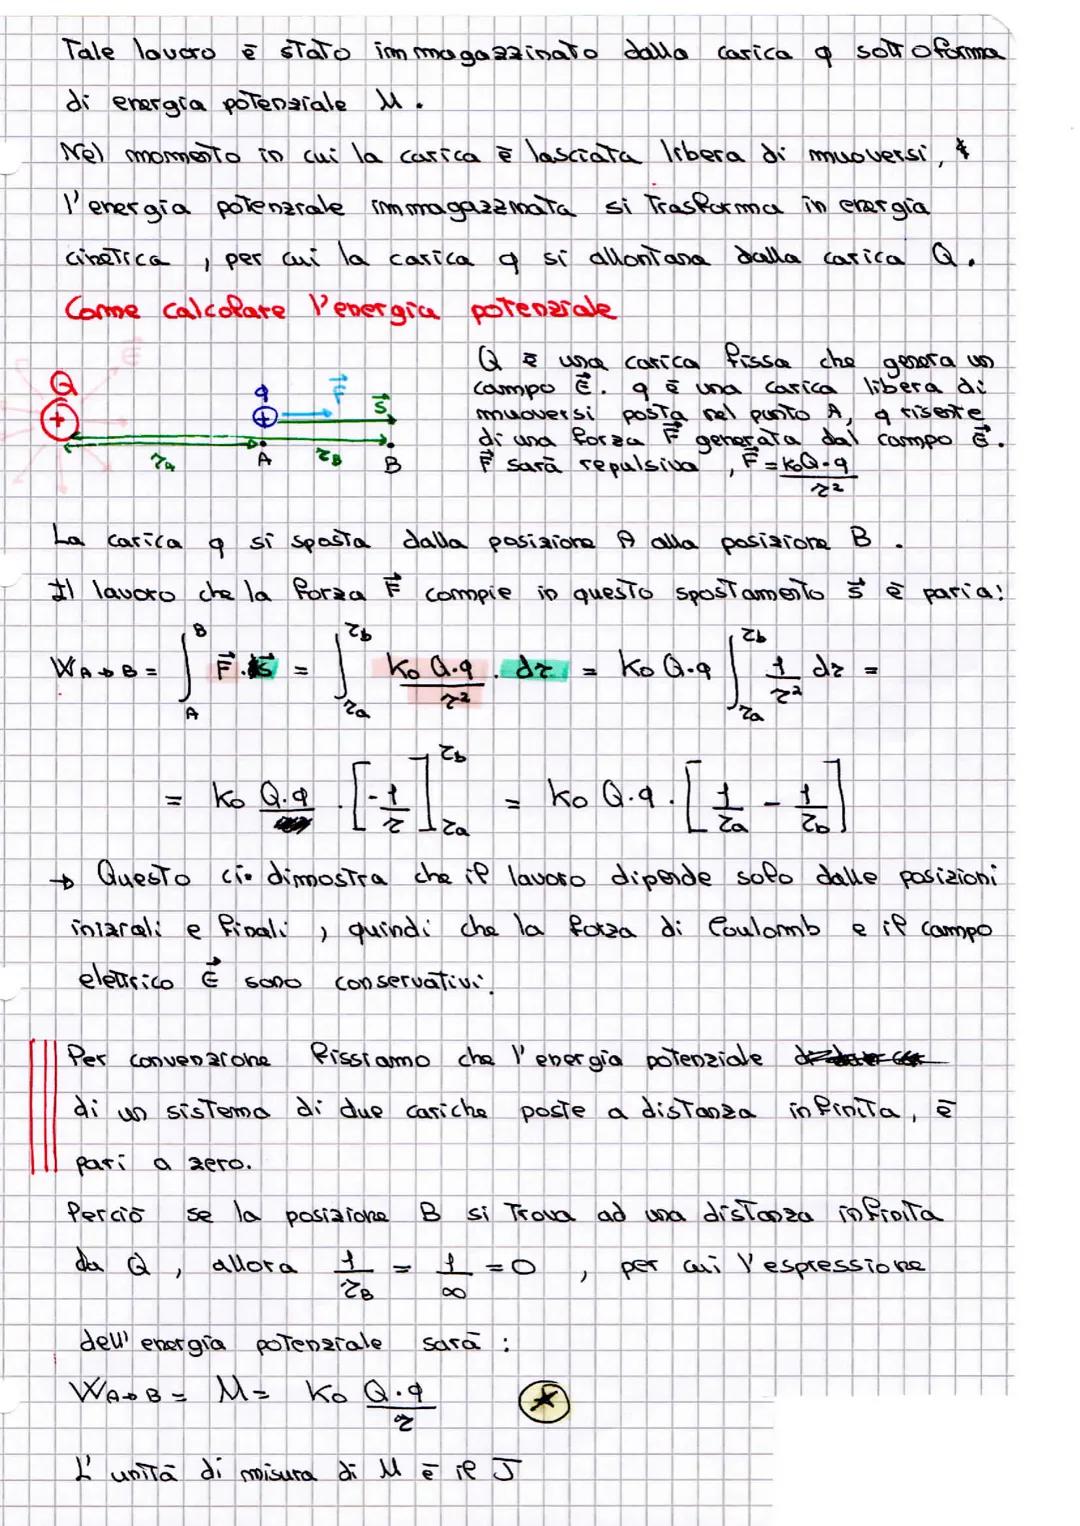 Tale lavoro è stato immagazzinato dalla carica q sotto forma
di energia potenziale U.
Nel momento in cui la carica è lasciata libera di muoversi,
l'energia potenziale immagazzinata si trasforma in energia
cinetica, per cui la carica q si allontana dalla carica Q.
Come calcolare l'energia potenziale
Q è una carica fissa che genera un
campo E⃗. q è una carica libera di
muoversi posta nel punto A, q risente
di una forza F⃗ generata dal campo E⃗.
F⃗ sarà repulsiva, F⃗ = k₀Q·q / r²
E⃗
Q
+
q
+
F⃗
S⃗
rₐ
A
r_B
B
La carica q si sposta dalla posizione A alla posizione B.
Il lavoro che la forza F⃗ compie in questo spostamento S⃗ è pari a:
W_A→B = ∫_A^B F⃗·S⃗ = ∫_ra^rb k₀ Q·q / r² · dr = k₀ Q·q ∫_ra^rb 1/r² dr =
= k₀ Q·q · [-1/r]_ra^rb = k₀ Q·q · [1/ra - 1/rb]
→ Questo ci dimostra che il lavoro dipende solo dalle posizioni
iniziali e finali, quindi che la forza di Coulomb e il campo
elettrico E⃗ sono conservativi.
Per convenzione fissiamo che l'energia potenziale
di un sistema di due cariche poste a distanza infinita, è
pari a zero.
Perciò se la posizione B si trova ad una distanza infinita
da Q, allora 1/r_B = 1/∞ = 0, per cui l'espressione
dell'energia potenziale sarà:
W_A→B = U = k₀ Q·q / r ★
L'unità di misura di U è il J